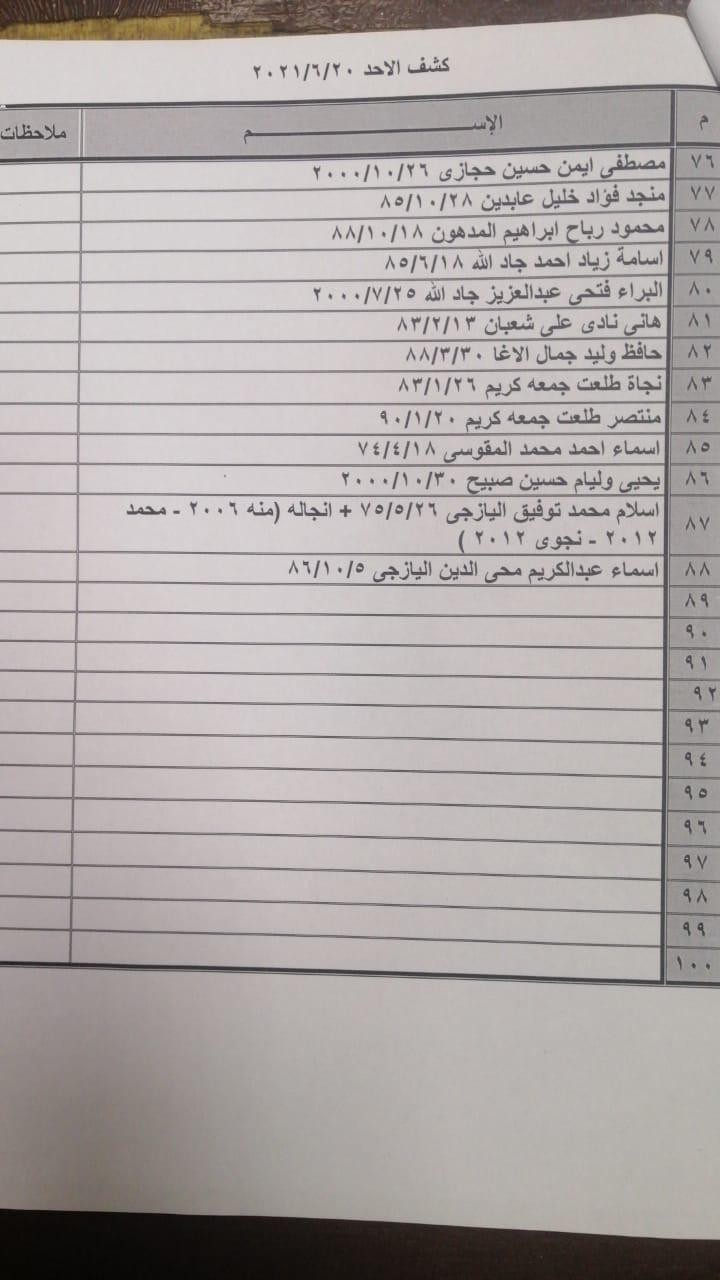 كشف الاحد ٢٠٢١/٦/٢٠
م الإســـــــــــــــــــــم ملاحظات
٧٦ مصطفى ايمن حسين حجازى ٢٠٠٠/١٠/٢٦
٧٧ منجد فؤاد خليل عابدين ٨٥/١٠/٢٨
٧٨ محمود رباح ابراهيم المدهون ٨٨/١٠/١٨
٧٩ اسامة زياد احمد جاد الله ٨٥/٦/١٨
٨٠ البراء فتحى عبدالعزيز جاد الله ٢٠٠٠/٧/٢٥
٨١ هانى نادى على شعبان ٨٣/٢/١٣
٨٢ حافظ وليد جمال الاغا ٨٨/٣/٣٠
٨٣ نجاة طلعت جمعه كريم ٨٣/١/٢٦
٨٤ منتصر طلعت جمعه كريم ٩٠/١/٢٠
٨٥ اسماء احمد محمد المقوسى ٧٤/٤/١٨
٨٦ يحيى وليام حسين صبيح ٢٠٠٠/١٠/٣٠
٨٧ اسلام محمد توفيق اليازجى ٧٥/٥/٢٦ + انجاله (منه ٢٠٠٦ - محمد
٢٠١٢ - نجوى ٢٠١٢ )
٨٨ اسماء عبدالكريم محى الدين اليازجى ٨٦/١٠/٥
٨٩
٩٠
٩١
٩٢
٩٣
٩٤
٩٥
٩٦
٩٧
٩٨
٩٩
١٠٠